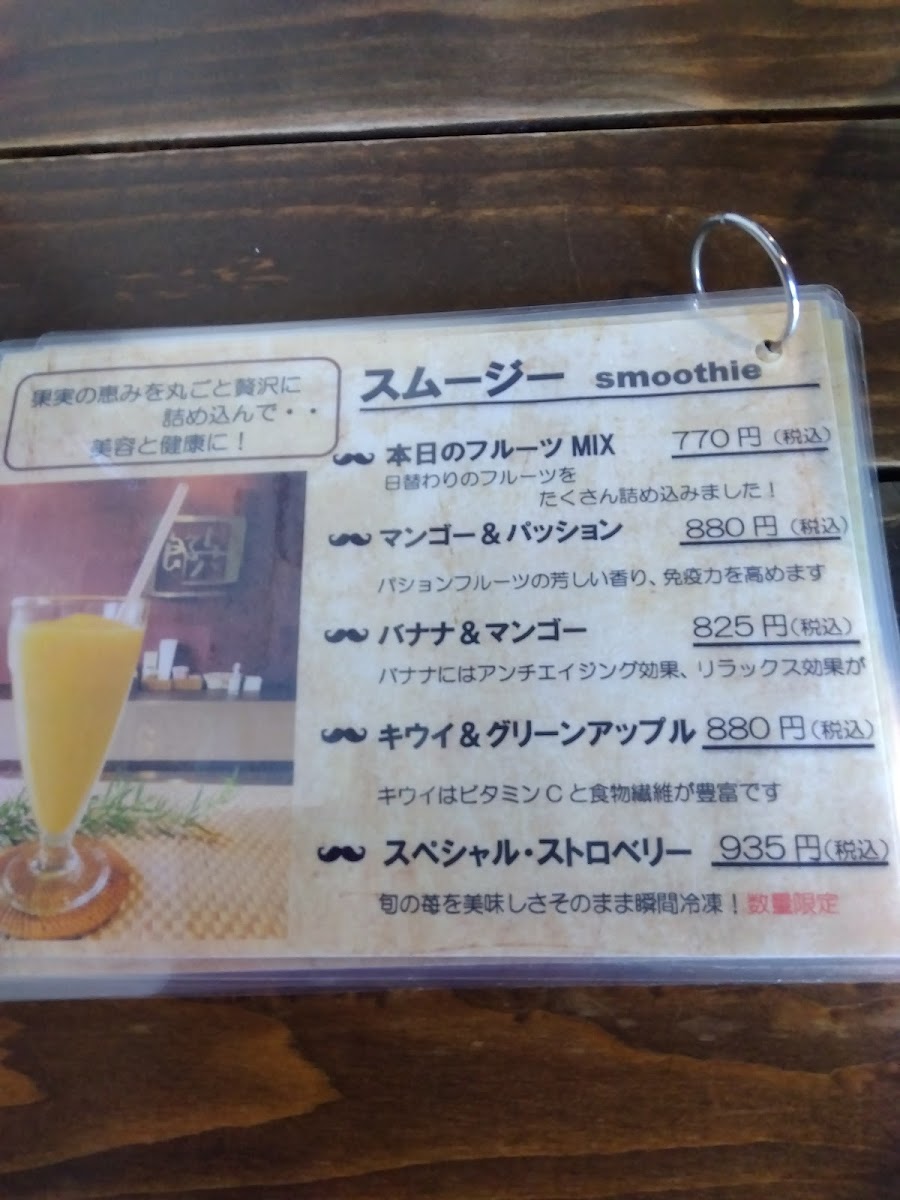 果実の恵みを丸ごと贅沢に
詰め込んで・・
美容と健康に！
スムージー smoothie
本日のフルーツ MIX 770 円 (税込)
日替わりのフルーツを
たくさん詰め込みました！
マンゴー＆パッション 880 円 (税込)
パションフルーツの芳しい香り、免疫力を高めます
バナナ＆マンゴー 825 円(税込)
バナナにはアンチエイジング効果、リラックス効果が
キウイ＆グリーンアップル 880 円(税込)
キウイはビタミン C と食物繊維が豊富です
スペシャル・ストロベリー 935 円(税込)
旬の苺を美味しさそのまま瞬間冷凍！数量限定